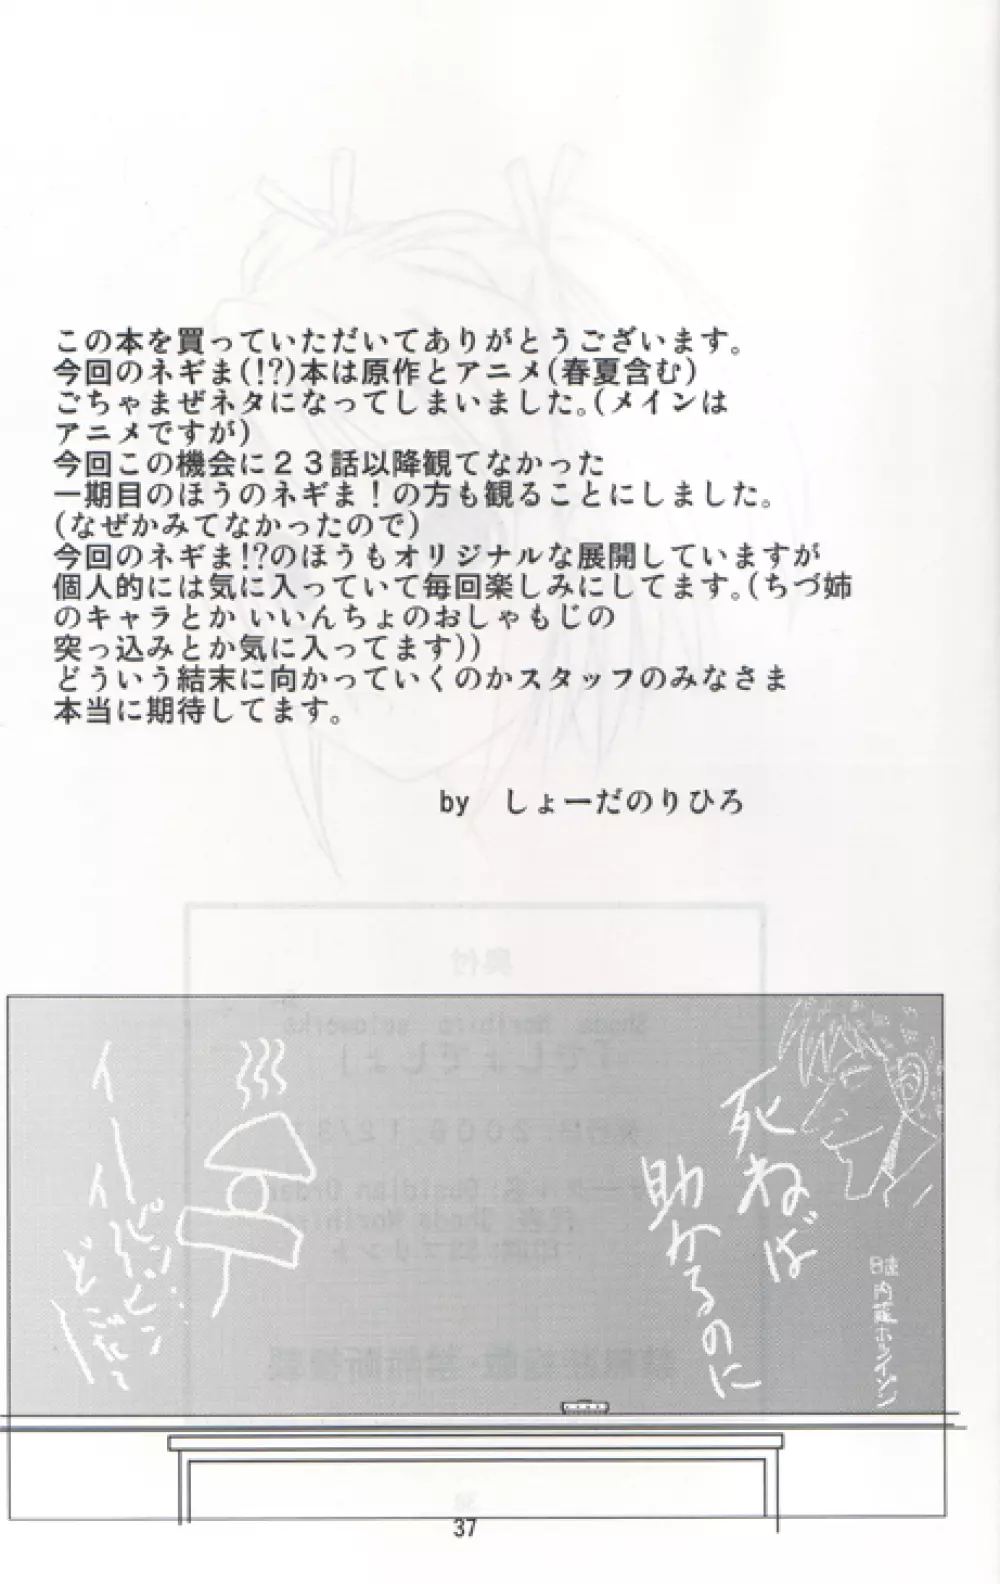 この本を買っていただいてありがとうございます。
今回のネギま(!?)本は原作とアニメ(春夏含む)
ごちゃまぜネタになってしまいました。(メインは
アニメですが)
今回この機会に２３話以降観てなかった
一期目のほうのネギま！の方も観ることにしました。
(なぜかみてなかったので)
今回のネギま!?のほうもオリジナルな展開していますが
個人的には気に入っていて毎回楽しみにしてます。(ちづ姉
のキャラとか いいんちょのおしゃもじの
突っ込みとか気に入ってます))
どういう結末に向かっていくのかスタッフのみなさま
本当に期待してます。
by しょーだのりひろ
死ねば
助かるのに
内藤ホライゾン
37